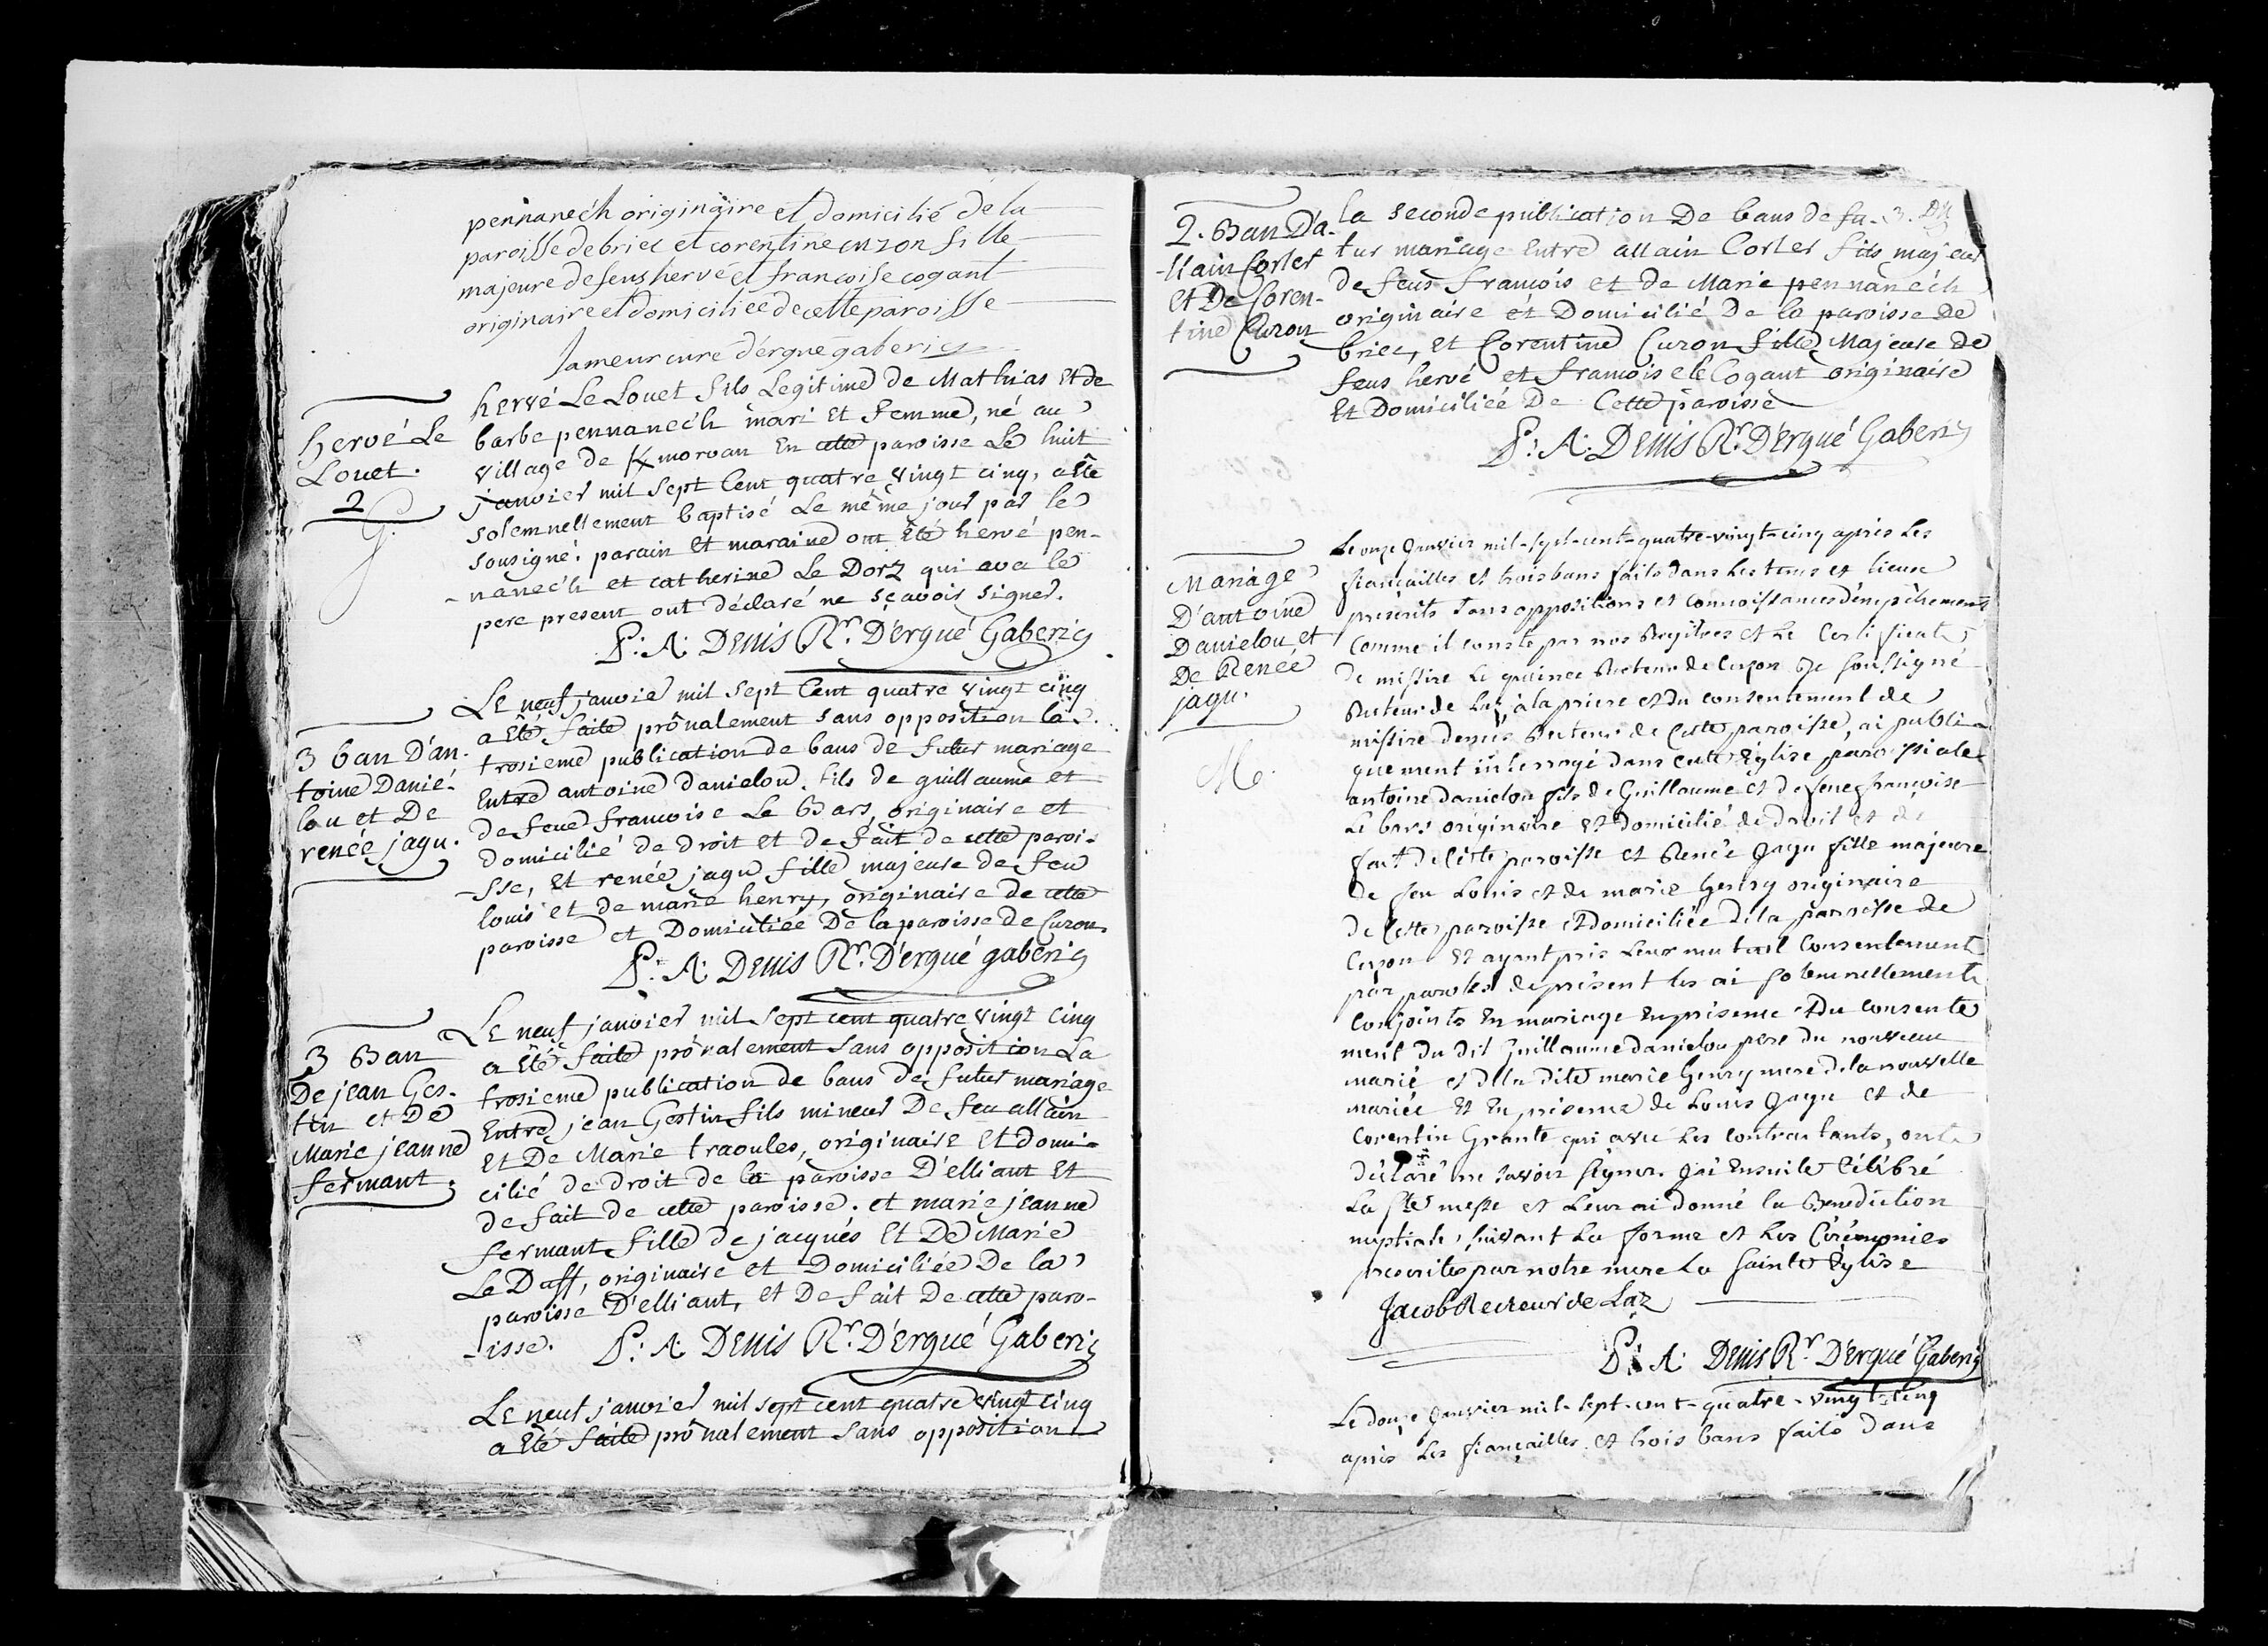 pennanech originaire et domicilié de la
paroisse de briec et corentine cuzon fille
majeure de feus hervé et francoise cogant
originaire et domiciliee de cette paroisse
Jameur cure d'ergue gaberic
hervé Le
Louet.
2
G.
hervé Le Louet fils Legitime de Mathias et de
barbe pennanec'h mari et femme, né au
village de Kmorvan En cette paroisse Le huit
janvier mil sept Cent quatre vingt cinq, a Eté
solemnellement baptisé Le même jour par le
sousigné. parain et maraine ont Eté hervé pen-
-nanec'h et catherine Le Dorz qui avec le
pere present ont déclaré ne sçavoir signer.
P: A: Denis Rr. D'ergué Gaberic
3 ban D'an-
toine Danié-
lou et De
renée jagu.
Le neuf janvier mil sept Cent quatre vingt cinq
a Eté faite prônalement sans opposition la
troisieme publication de bans de futur mariage
Entre antoine danielou fils de guillaume et
de feue francoise Le Bars, originaire et
domicilié de droit et de fait de cette paroi-
-sse, et renée jagu fille majeure de feu
louis et de marie henry, originaire de cette
paroisse et Domiciliée De la paroisse de Cuzon.
P: A: Denis Rr. D'ergué gaberic
3 Ban
De jean Ges-
tin et De
Marie jeanne
fermant.
Le neuf janvier mil sept cent quatre vingt cinq
a Eté faite prônalement sans opposition La
troisieme publication de bans de futur mariage
Entre jean Gestin fils mineur De feu allain
et De Marie traoules, originaire et domi-
cilié de droit de la paroisse D'elliant et
de fait de cette paroisse. et marie jeanne
fermant fille de jacques et De Marie
Le Daff, originaire et Domiciliée De la
paroisse D'elliant, et De fait De cette paro-
-isse. P: A: Denis Rr. D'Ergué Gaberic
Le neuf janvier mil sept cent quatre vingt cinq
a Eté faite prônalement sans opposition
2. Ban D'a-
-llain Corler
et De Coren-
tine Cuzon
la seconde publication De bans de fu-
tur mariage Entre allain Corler fils majeur
de feus francois et de Marie pennanec'h
originaire et Domicilié De la paroisse De
briec, et Corentine Cuzon fille Majeure De
feus hervé et francoise Cogant originaire
Et Domiciliée De Cette paroisse
P: A: Denis Rr. D'Ergué Gaberic
Mariage
D'antoine
Danielou et
De Renée
jagu.
M.
Le onze Janvier mil-sept-cent-quatre-vingt-cinq après Les
fiançailles et trois bans faits dans les tems et lieux
prescrits sans oppositions et connoissances d'empêchements
comme il conste par nos Registres et Le Certificat
de missire Le Recteur de Cuzon Je soussigné
Recteur de Laz à la priere et du consentement de
missire denis Recteur de Cette paroisse, ai publi-
quement interrogé dans cette Eglise paroissiale
antoine danielou fils de Guillaume et de feue françoise
Le bars originaire et domicilié de droit et de
fait de Cette paroisse et Renée Jagu fille majeure
de feu Louis et de marie henry originaire
de Cette paroisse et domiciliée de la paroisse de
Cuzon Et ayant pris Leur mutuel Consentement
par paroles de présent les ai solemnellement
Conjoints En mariage En présence et du consente
ment du dit Guillaume danielou pere du nouveau
marié et de la dite marie henry mere de la nouvelle
mariée Et En présence de Louis Jagu et de
Corentin Grante qui avec Les contractants, ont
déclaré ne savoir signer. J'ai Ensuite Célébré
La ste messe et Leur ai donné la Benediction
nuptiale, suivant La forme et Les Cérémonies
prescrites par notre mere La Sainte Eglise
Jacob Recteur de Laz
P: A: Denis Rr. D'Ergué Gaberic
Le douze Janvier mil-sept-cent-quatre-vingt-cinq
après Les fiançailles et trois bans faits dans